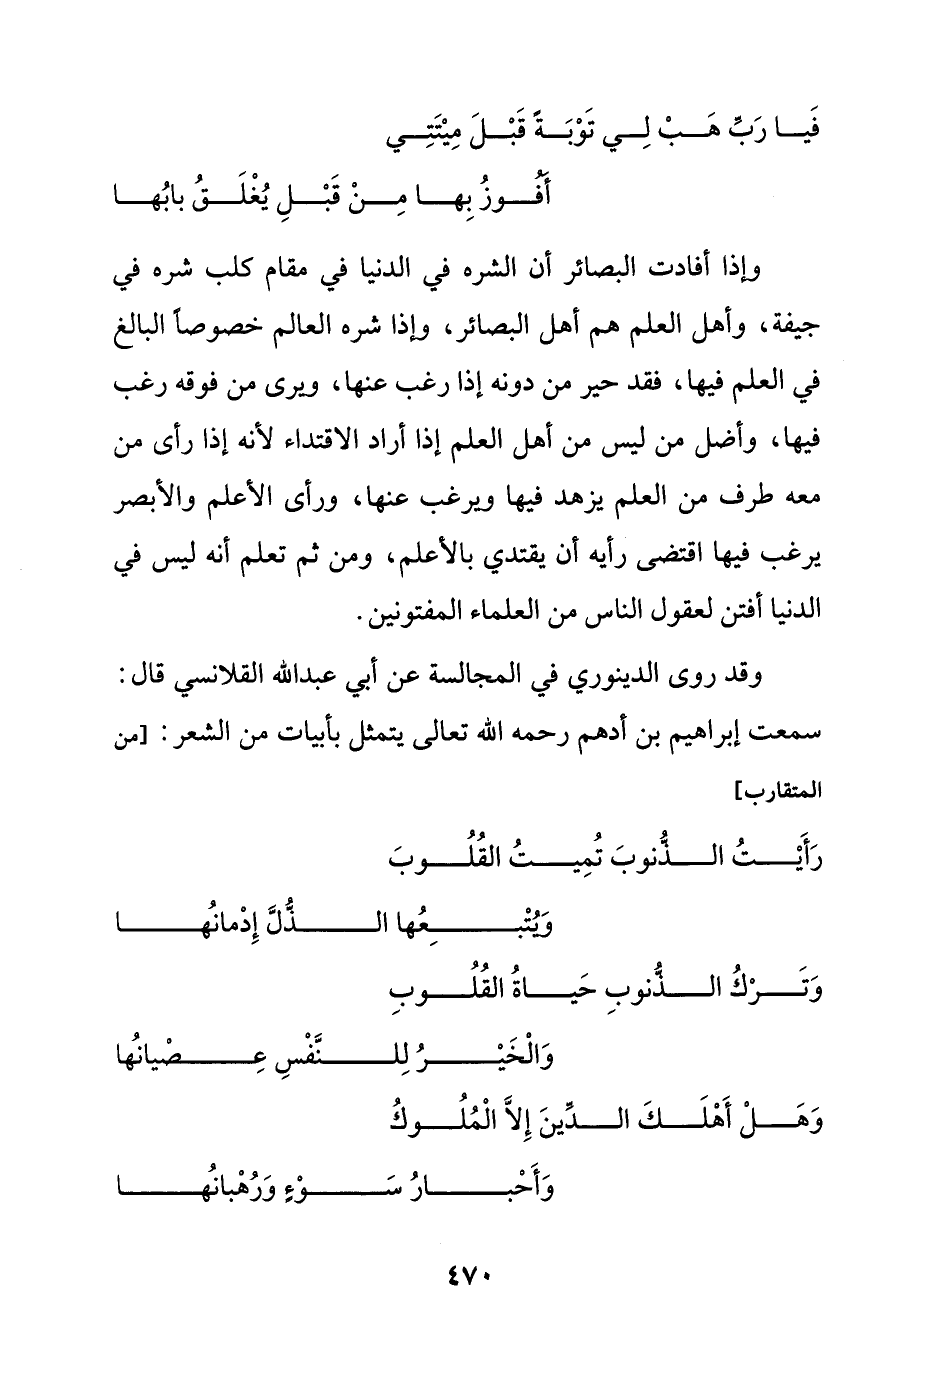 فَيا رَبِّ هَبْ لِي تَوْبَةً قَبْلَ مِيْتَتِي
أَفُوزُ بِها مِنْ قَبْلِ يُغْلَقُ بابُها
وإذا أفادت البصائر أن الشره في الدنيا في مقام كلب شره في
جيفة، وأهل العلم هم أهل البصائر، وإذا شره العالم خصوصاً البالغ
في العلم فيها، فقد حير من دونه إذا رغب عنها، ويرى من فوقه رغب
فيها، وأضل من ليس من أهل العلم إذا أراد الاقتداء لأنه إذا رأى من
معه طرف من العلم يزهد فيها ويرغب عنها، ورأى الأعلم والأبصر
يرغب فيها اقتضى رأيه أن يقتدي بالأعلم، ومن ثم تعلم أنه ليس في
الدنيا أفتن لعقول الناس من العلماء المفتونين.
وقد روى الدينوري في المجالسة عن أبي عبدالله القلانسي قال:
سمعت إبراهيم بن أدهم رحمه الله تعالى يتمثل بأبيات من الشعر: [من
المتقارب]
رَأَيْتُ الذُّنوبَ تُمِيتُ القُلُوبَ
وَيُتْبِعُها الذُّلَّ إِدْمانُها
وَتَرْكُ الذُّنوبِ حَياةُ القُلُوبِ
وَالْخَيْرُ لِلنَّفْسِ عِصْيانُها
وَهَلْ أَهْلَكَ الدِّينَ إِلاَّ الْمُلُوكُ
وَأَحْبارُ سَوْءٍ وَرُهْبانُها
٤٧٠